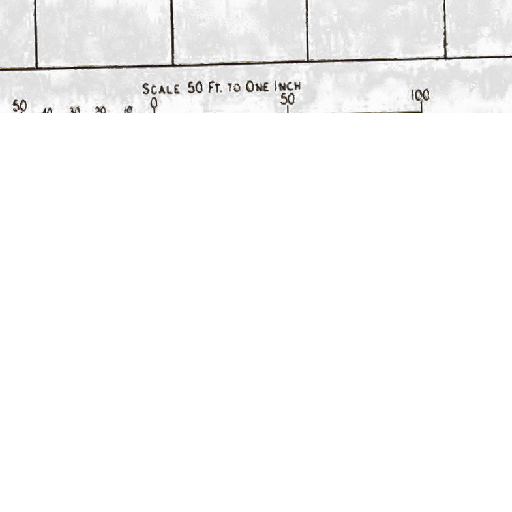 SCALE 50 FT. TO ONE INCH
50 40 30 20 10 0 50 100